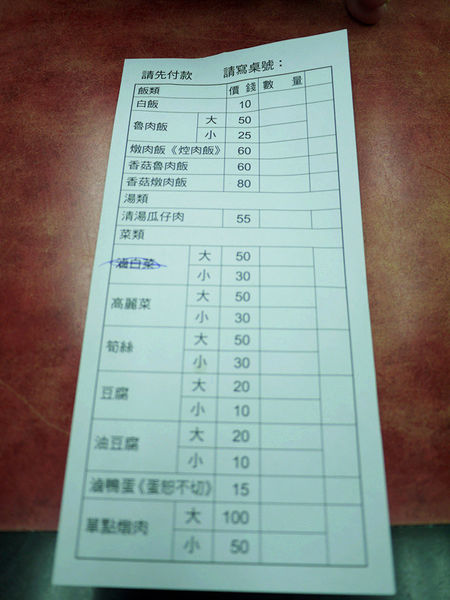 請先付款 請寫桌號：
飯類 價錢 數量
白飯 10
魯肉飯 大 50
小 25
燉肉飯《焢肉飯》 60
香菇魯肉飯 60
香菇燉肉飯 80
湯類
清湯瓜仔肉 55
菜類
滷白菜 大 50
小 30
高麗菜 大 50
小 30
筍絲 大 50
小 30
豆腐 大 20
小 10
油豆腐 大 20
小 10
滷鴨蛋《蛋恕不切》 15
單點燉肉 大 100
小 50